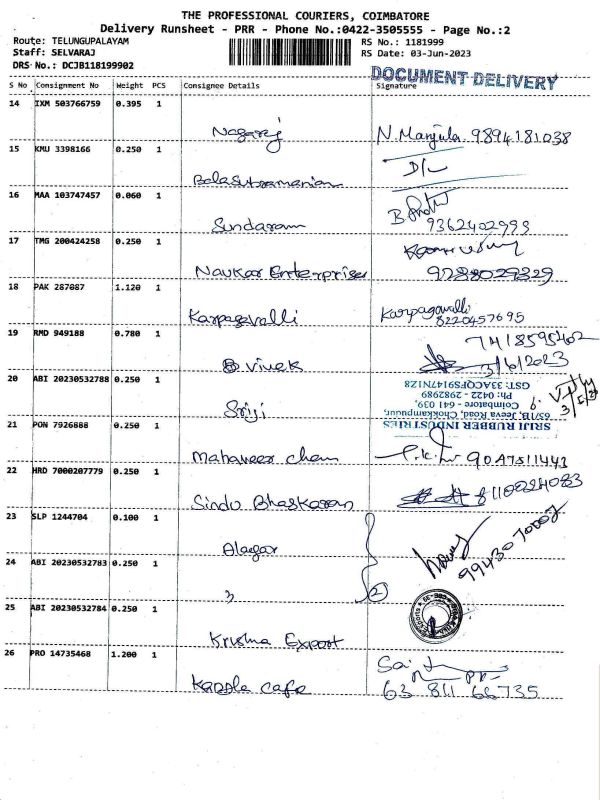 THE PROFESSIONAL COURIERS, COIMBATORE
Delivery Runsheet - PRR - Phone No.:0422-3505555 - Page No.:2
Route: TELUNGUPALAYAM RS No.: 1181999
Staff: SELVARAJ RS Date: 03-Jun-2023
DRS No.: DCJB118199902
DOCUMENT DELIVERY
S No Consignment No Weight PCS Consignee Details Signature
14 IXM 503766759 0.395 1
Nagaraj N. Manjula 9894181038
15 KMU 3398166 0.250 1
Balasubramanian D/L
16 MAA 103747457 0.060 1
Sundaram 9362402993
17 TMG 200424258 0.250 1
Navkar Enterprises 9788029329
18 PAK 287087 1.120 1
Karpagavalli Karpagavalli
8220457695
19 RMD 949188 0.780 1
7418595402
vivek 3/6/2023
20 ABI 20230532788 0.250 1
Sriji
SRIJI RUBBER INDUSTRIES
65/1B, Jeeva Road, Chokkampuur,
Coimbatore - 641 039,
Ph: 0422 - 2982989
GST: 33ACQFS9147N1Z8
21 PON 7926888 0.250 1
Mahaveer 9047511443
22 HRD 7000207779 0.250 1
Sindu Bhaskaran 8110024083
23 SLP 1244704 0.100 1
Alagar 9943070002
24 ABI 20230532783 0.250 1
2
25 ABI 20230532784 0.250 1
Krishna Export
26 PRO 14735468 1.200 1
Kappla Cafe 63 811 66735